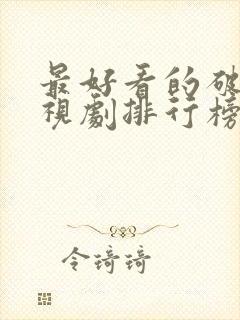 最好看的破
視劇排行榜
令琦琦